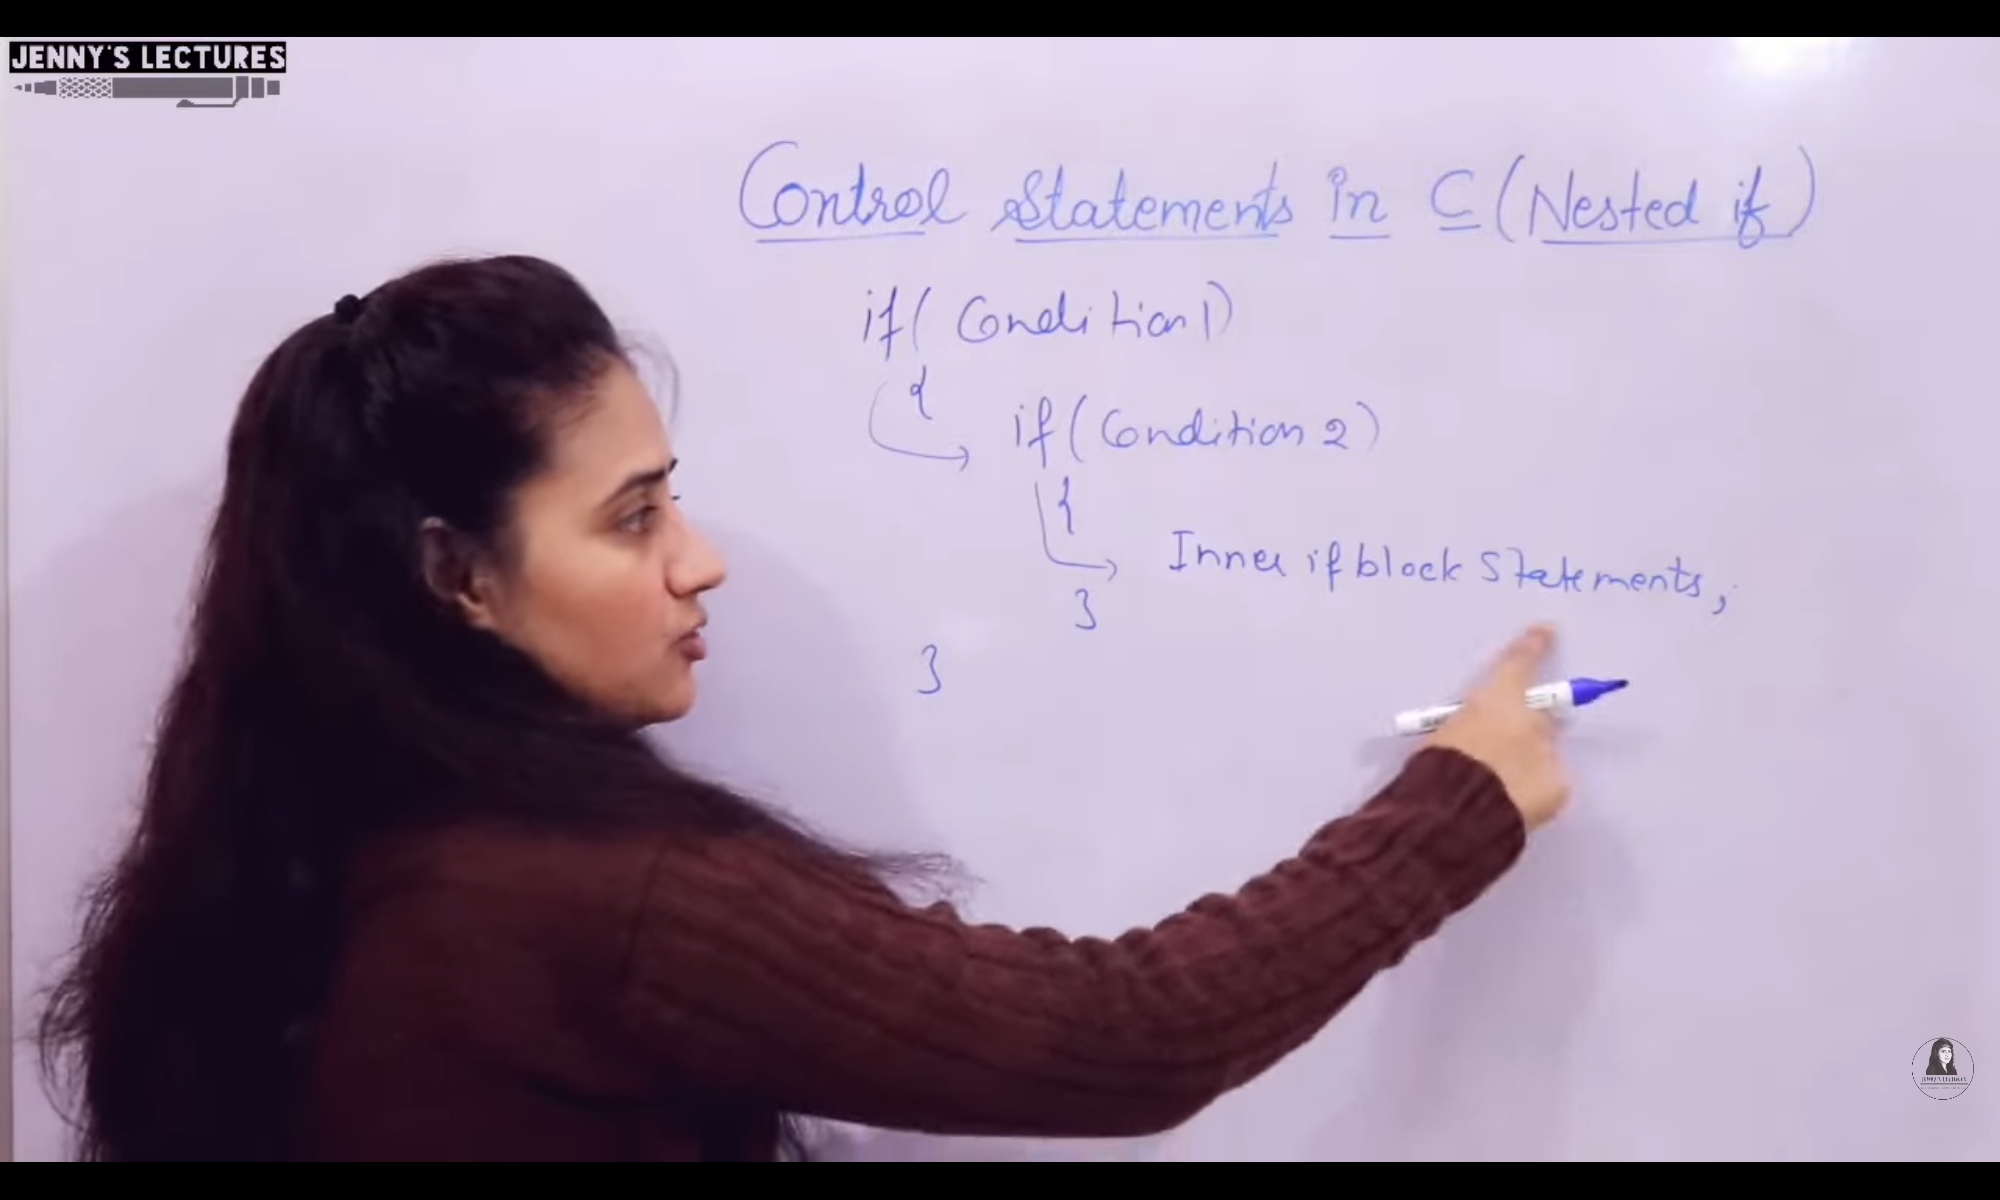 JENNY'S LECTURES
Control Statements in C (Nested if)
if( Condition1)
{
if( Condition 2)
{
Inner if block Statements;
}
}
JENNY'S LECTURES